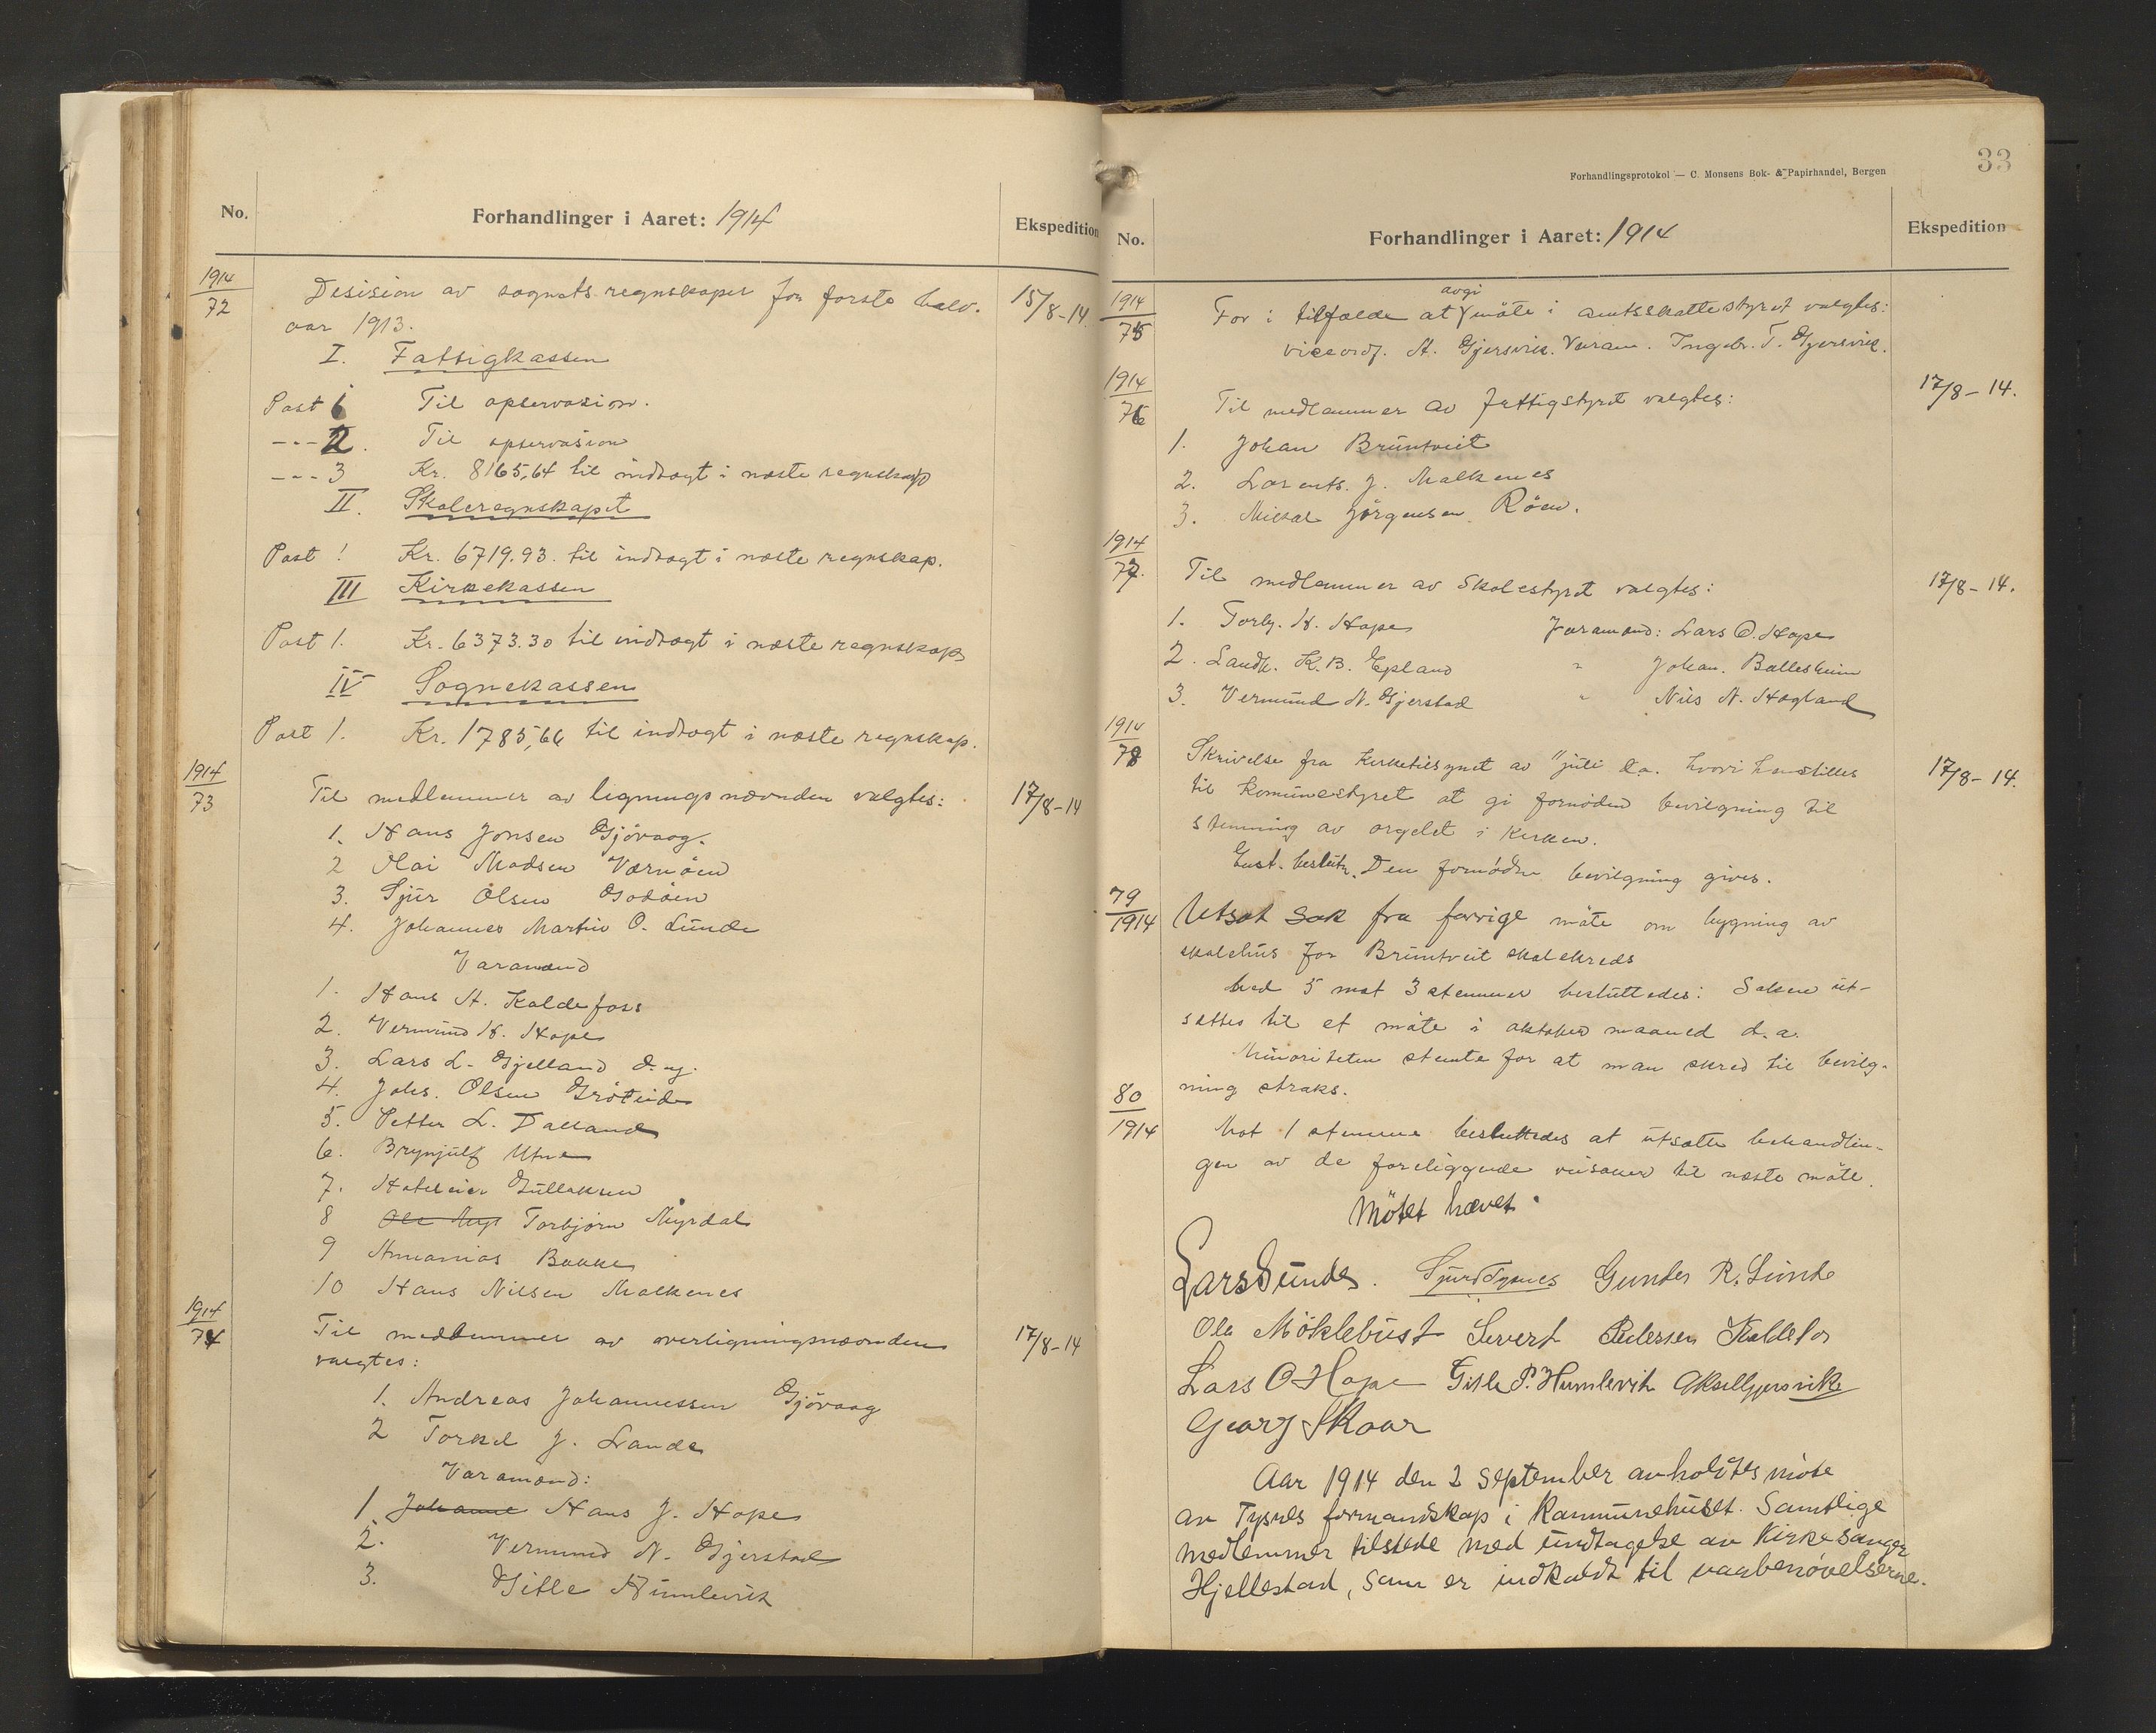 No.
Forhandlinger i Aaret: 1914
Ekspedition
1914
72
Desision av sognets regnskaper for forste halv-
aar 1913.
15/8-14
I. Fattigkassen
Post 1 Til opservasion.
--- 2. Til opservasion
--- 3 Kr. 8165,64 til indtægt i næste regnskap
II. Skoleregnskapet
Post 1 Kr. 6719.93. til indtægt i næste regnskap.
III Kirkekassen
Post 1. Kr. 6373.30 til indtægt i næste regnskap
IV Sognekassen
Post 1. Kr. 1785,66 til indtægt i næste regnskap.
1914
73
Til medlemmer av ligningsnævnden valgtes:
17/8-14
1. Hans Jonsen Gjövaag.
2 Olai Madsen Værnöen
3. Sjur Olsen Godöen
4. Johannes Martin O. Lunde
Varamænd
1. Hans H. Kaldefoss
2. Vermund H. Hope
3. Lars L. Gjelland d.y.
4. Johs. Olsen Gröteide
5. Petter L. Dalland
6. Brynjulf Utne
7. Hoteleier Gullaksen
8 Ole Myr Torbjørn Myrdal
9 Annanias Bakke
10 Hans Nilsen Malkenes
1914
74
Til medlemmer av overligningsnævnden
valgtes:
17/8-14
1. Andreas Johannessen Gjövaag
2 Torkel J. Lande
Varamænd:
1. Johanne Hans J. Hope
2. Vermund N. Gjerstad
3. Gitle Humlevik
Forhandlingsprotokol — C. Monsens Bok- & Papirhandel, Bergen
33
No.
Forhandlinger i Aaret: 1914
Ekspedition
1914
75
avgi
For i tilfælde at möte i amtsskattestyret valgtes:
viceordf. A. Gjersvik. Varam. Ingebr. T. Gjersvik.
1914
76
Til medlemmer av fattigstyret valgtes:
17/8-14.
1. Johan Bruntveit
2. Lorents. J. Malkenes
3. Mikal Jörgensen Röen.
1914
77.
Til medlemmer av Skolestyret valgtes:
17/8-14.
1. Torbj. H. Hope Varamænd: Lars O. Hope
2. Landh. K. B. Epland " Johan. Ballesheim
3. Vermund N. Gjerstad " Nils N. Hogland
1914
78
Skrivelse fra Kirketilsynet av 11 juli d.a. hvori henstilles
17/8-14.
til Komunestyret at gi fornöden bevilgning til
stemning av orgelet i Kirken.
Enst. beslutn. Den fornödne bevilgning gives.
79
1914
Utsat sak fra forrige möte om bygning av
skolehus for Bruntveit skolekreds
Med 5 mot 3 stemmer besluttedes: Saken ut-
sættes til et möte i oktober maaned d.a.
Minoriteten stemte for at man skred til bevilg-
ning straks.
80
1914
Mot 1 stemme besluttedes at utsætte behandlin-
gen av de foreliggende veisaker til næste möte.
Mötet hævet.
Lars Lunde. Sjurd Tysnes Gunder R. Lunde
Ole Möklebust Sivert Pedersen Kallefos
Lars O Hope Gitle P. Humlevik Aksel Gjersvik
Georg Skaar
Aar 1914 den 2 September avholdtes möte
av Tysnes formandskap i Kommunehuset. Samtlige
medlemmer tilstede med undtagelse av Kirkesanger
Hjellestad, som er indkaldt til vaabenövelserne.